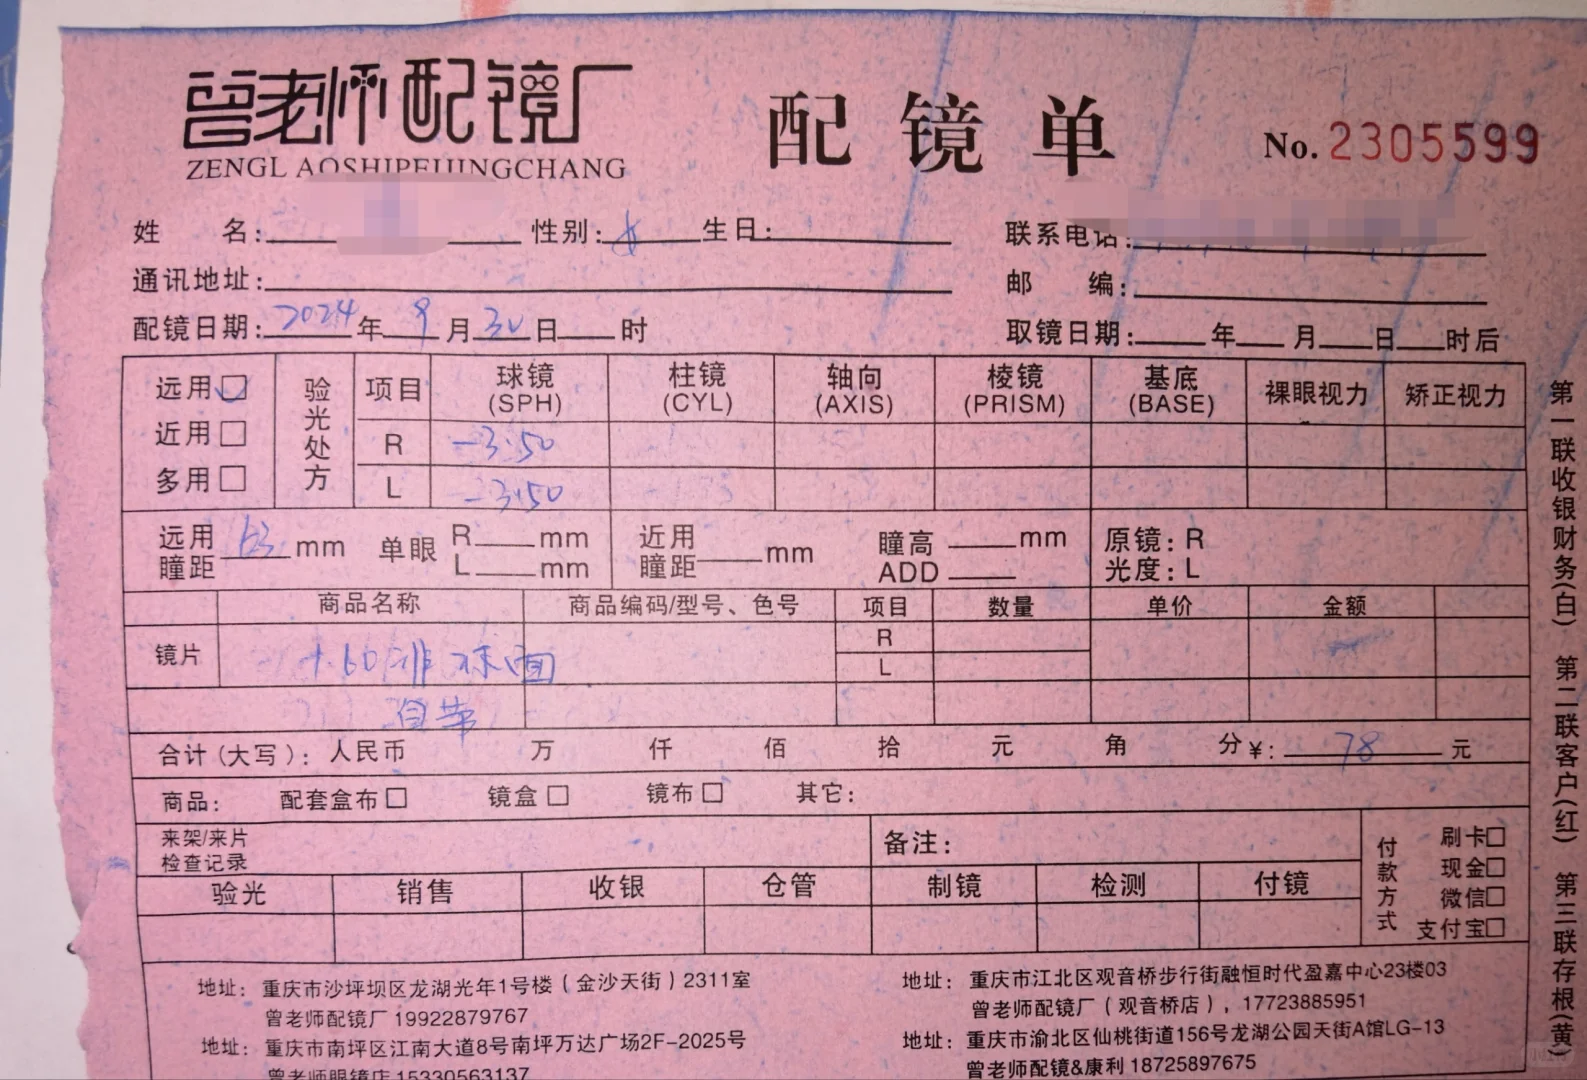 曾老师配镜厂
ZENGLAOSHIPEIJINGCHANG
配镜单
No. 2305599
姓 名: 性别: 女 生日:
联系电话:
通讯地址:
邮 编:
配镜日期: 2024 年 9 月 30 日 时
取镜日期: 年 月 日 时后
远用☑
近用□
多用□
验光处方
项目 球镜(SPH) 柱镜(CYL) 轴向(AXIS) 棱镜(PRISM) 基底(BASE) 裸眼视力 矫正视力
R -3.50
L -3.50
远用瞳距 63 mm 单眼 R mm L mm 近用瞳距 mm 瞳高 mm ADD 原镜: R 光度: L
商品名称 商品编码/型号、色号 项目 数量 单价 金额
镜片 1.60非球面 R L
自带
合计(大写): 人民币 万 仟 佰 拾 元 角 分 ¥: 78 元
商品: 配套盒布□ 镜盒□ 镜布□ 其它:
来架/来片
检查记录
备注:
付款方式
刷卡□
现金□
微信□
支付宝□
验光 销售 收银 仓管 制镜 检测 付镜
地址: 重庆市沙坪坝区龙湖光年1号楼(金沙天街)2311室
曾老师配镜厂 19922879767
地址: 重庆市南坪区江南大道8号南坪万达广场2F-2025号
曾老师眼镜店 15330563137
地址: 重庆市江北区观音桥步行街融恒时代盈嘉中心23楼03
曾老师配镜厂(观音桥店), 17723885951
地址: 重庆市渝北区仙桃街道156号龙湖公园天街A馆LG-13
曾老师配镜&康利 18725897675
第一联收银财务(白) 第二联客户(红) 第三联存根(黄)